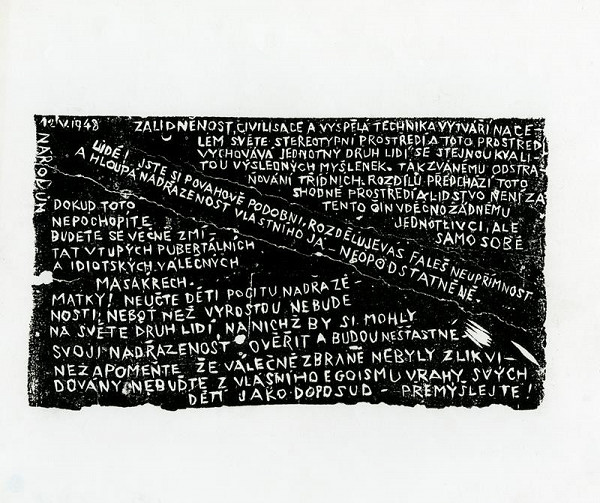 12.V.1948
NÁRODŮM
ZALIDNĚNOST, CIVILISACE A VYSPĚLÁ TECHNIKA VYTVÁŘÍ NA CE-
LÉM SVĚTĚ STEREOTYPNÍ PROSTŘEDÍ A TOTO PROSTŘEDÍ
VYCHOVÁVÁ JEDNOTNÝ DRUH LIDÍ, SE STEJNOU KVALI-
TOU VÝSLEDNÝCH MYŠLENEK. TAK ZVANÉMU ODSTRA-
ŇOVÁNÍ TŘÍDNÍCH ROZDÍLŮ PŘEDCHÁZÍ TOTO
SHODNÉ PROSTŘEDÍ A LIDSTVO NENÍ ZA
TENTO ČIN VDĚČNO ŽÁDNÉMU
JEDNOTLIVCI, ALE
SAMO SOBĚ
LIDÉ! JSTE SI POVAHOVĚ PODOBNI, ROZDĚLUJE VÁS FALEŠ NEUPŘÍMNOST
A HLOUPÁ NADŘAZENOST VLASTNÍHO JÁ - NEOPODSTATNĚNĚ.
DOKUD TOTO
NEPOCHOPÍTE
BUDETE SE VĚČNĚ ZMÍ-
TAT V TUPÝCH PUBERTÁLNÍCH
A IDIOTSKÝCH VÁLEČNÝCH
MASAKRECH.
MATKY! NEUČTE DĚTI POCITU NADŘAZE-
NOSTI, NEBOŤ NEŽ VYROSTOU NEBUDE
NA SVĚTĚ DRUH LIDÍ, NA NICHŽ BY SI MOHLY
SVOJI NADŘAZENOST OVĚŘIT A BUDOU NEŠŤASTNÉ
NEZAPOMEŇTE ŽE VÁLEČNÉ ZBRANĚ NEBYLY ZLIKVI-
DOVÁNY, NEBUĎTE Z VLASTNÍHO EGOISMU VRAHY SVÝCH
DĚTÍ JAKO DOPOSUD - PŘEMÝŠLEJTE!